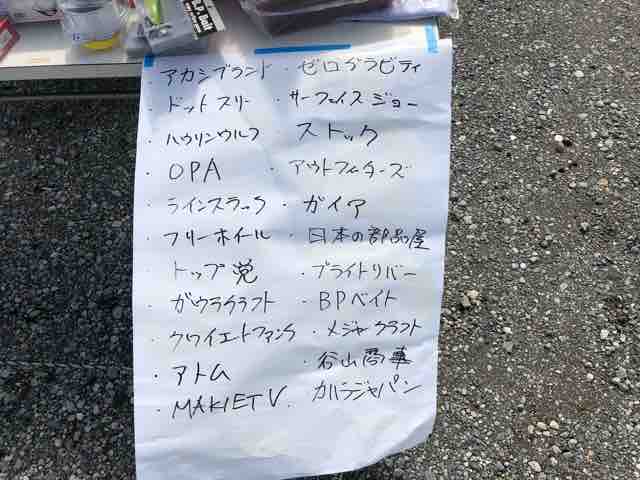 B.P. Bait
・アカシブランド ・ゼログラビティ
・ドットスリー ・サーフェイスジョー
・ハウリンウルフ ・ストック
・OPA ・アウトフィターズ
・ラインスラック ・ガイア
・フリーホイール ・日本の部品屋
・トップ党 ・ブライトリバー
・ガウラクラフト ・BPベイト
・クワイエットファンク ・メジャークラフト
・アトム ・谷山商事
・MAKIETV ・カハラジャパン